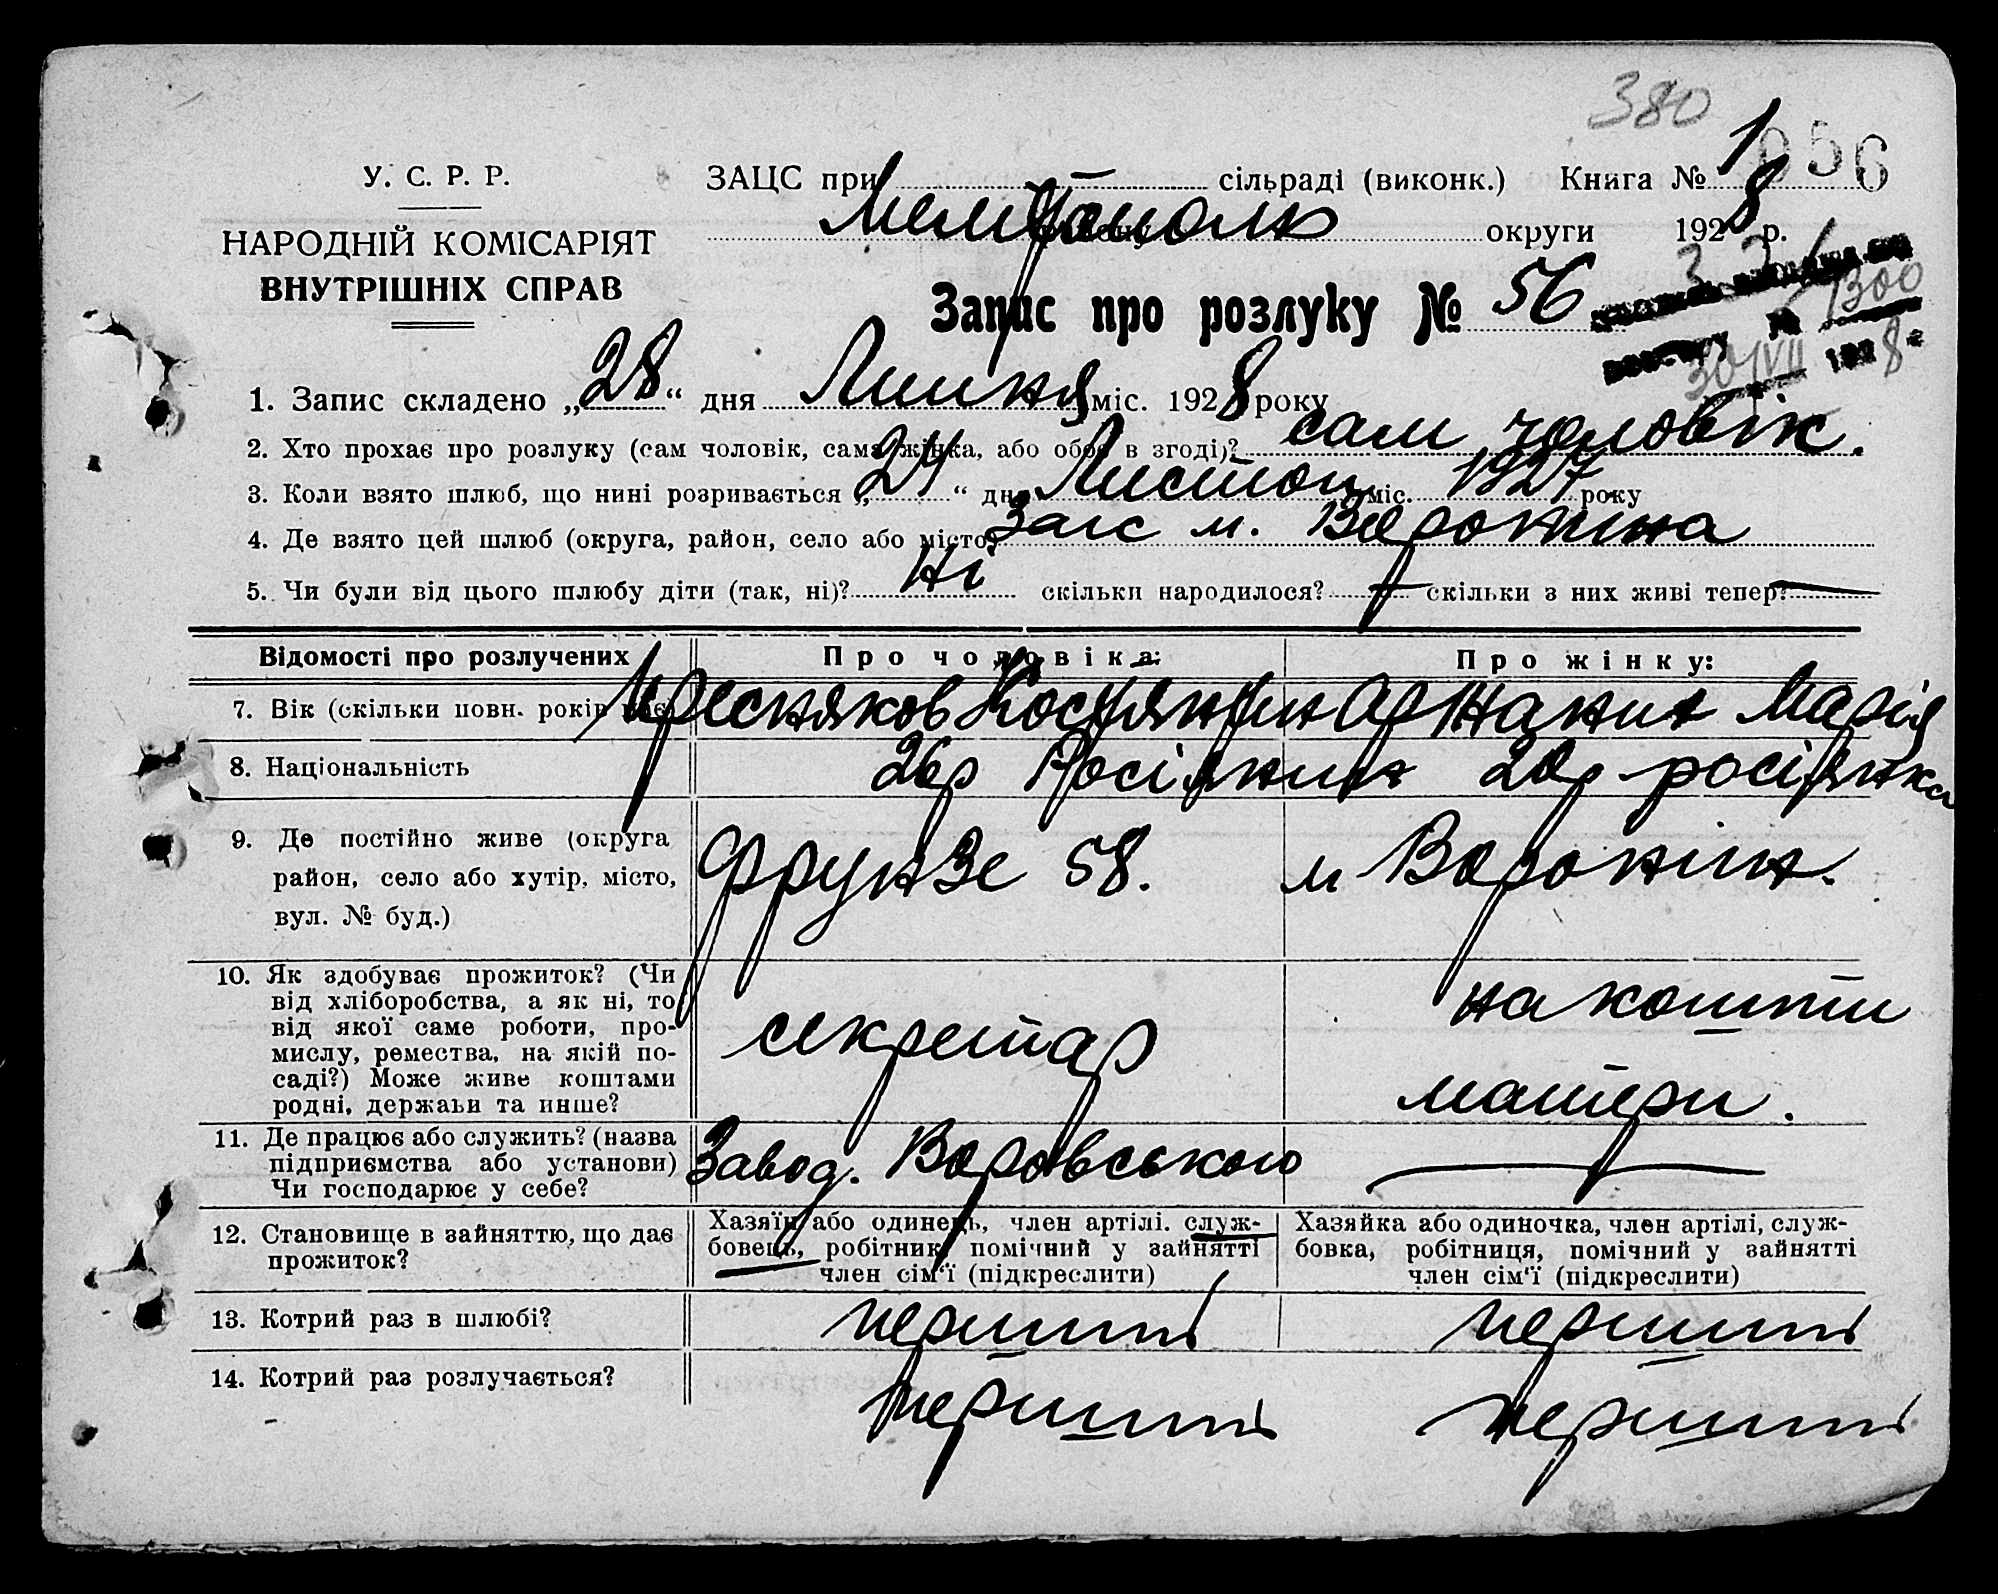 380
У. С. Р. Р.
ЗАЦС при сільраді (виконк.) Книга № 1 056
НАРОДНІЙ КОМІСАРІЯТ
ВНУТРІШНІХ СПРАВ
Мелітополь округи 1928 р.
Запис про розлуку № 56
1300
30/VII 1928
1. Запис складено „28“ дня Липня міс. 1928 року
2. Хто прохає про розлуку (сам чоловік, сама жінка, або обоє в згоді)? сам чоловік.
3. Коли взято шлюб, що нині розривається „24“ дня Листоп. міс. 1927 року
4. Де взято цей шлюб (округа, район, село або місто) Загс м.
5. Чи були від цього шлюбу діти (так, ні)? ні скільки народилося? — скільки з них живі тепер? —
Відомості про розлучених
Про чоловіка:
Про жінку:
7. Вік (скільки повн. років має)
Костянтин
Марія
8. Національність
26р Росіянин
20р росіянка
9. Де постійно живе (округа
район, село або хутір, місто,
вул. № буд.)
Фрунзе 58.
м
10. Як здобуває прожиток? (Чи
від хліборобства, а як ні, то
від якої саме роботи, про-
мислу, ремества, на якій по-
саді?) Може живе коштами
родні, держави та инше?
секретар
на кошти
матери.
11. Де працює або служить? (назва
підприємства або установи)
Чи господарює у себе?
Завод. Воровського
—
12. Становище в зайняттю, що дає
прожиток?
Хазяїн або одинець, член артілі. служ-
бовець, робітник помічний у зайнятті
член сім'ї (підкреслити)
Хазяйка або одиночка, член артілі, служ-
бовка, робітниця, помічний у зайнятті
член сім'ї (підкреслити)
13. Котрий раз в шлюбі?
перший
перший
14. Котрий раз розлучається?
перший
перший